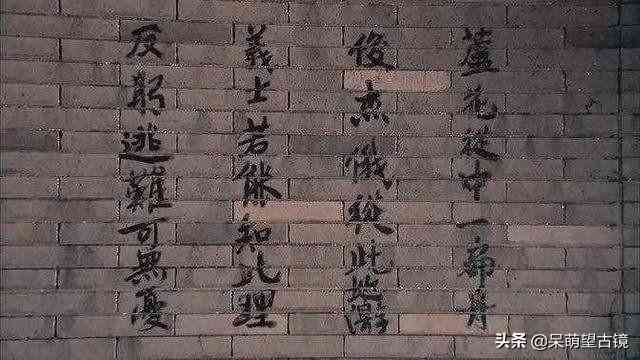 蘆花叢中一扁舟
俊杰俄從此地遊
義士若能知此理
反躬逃難可無憂
头条 @呆萌望古镜